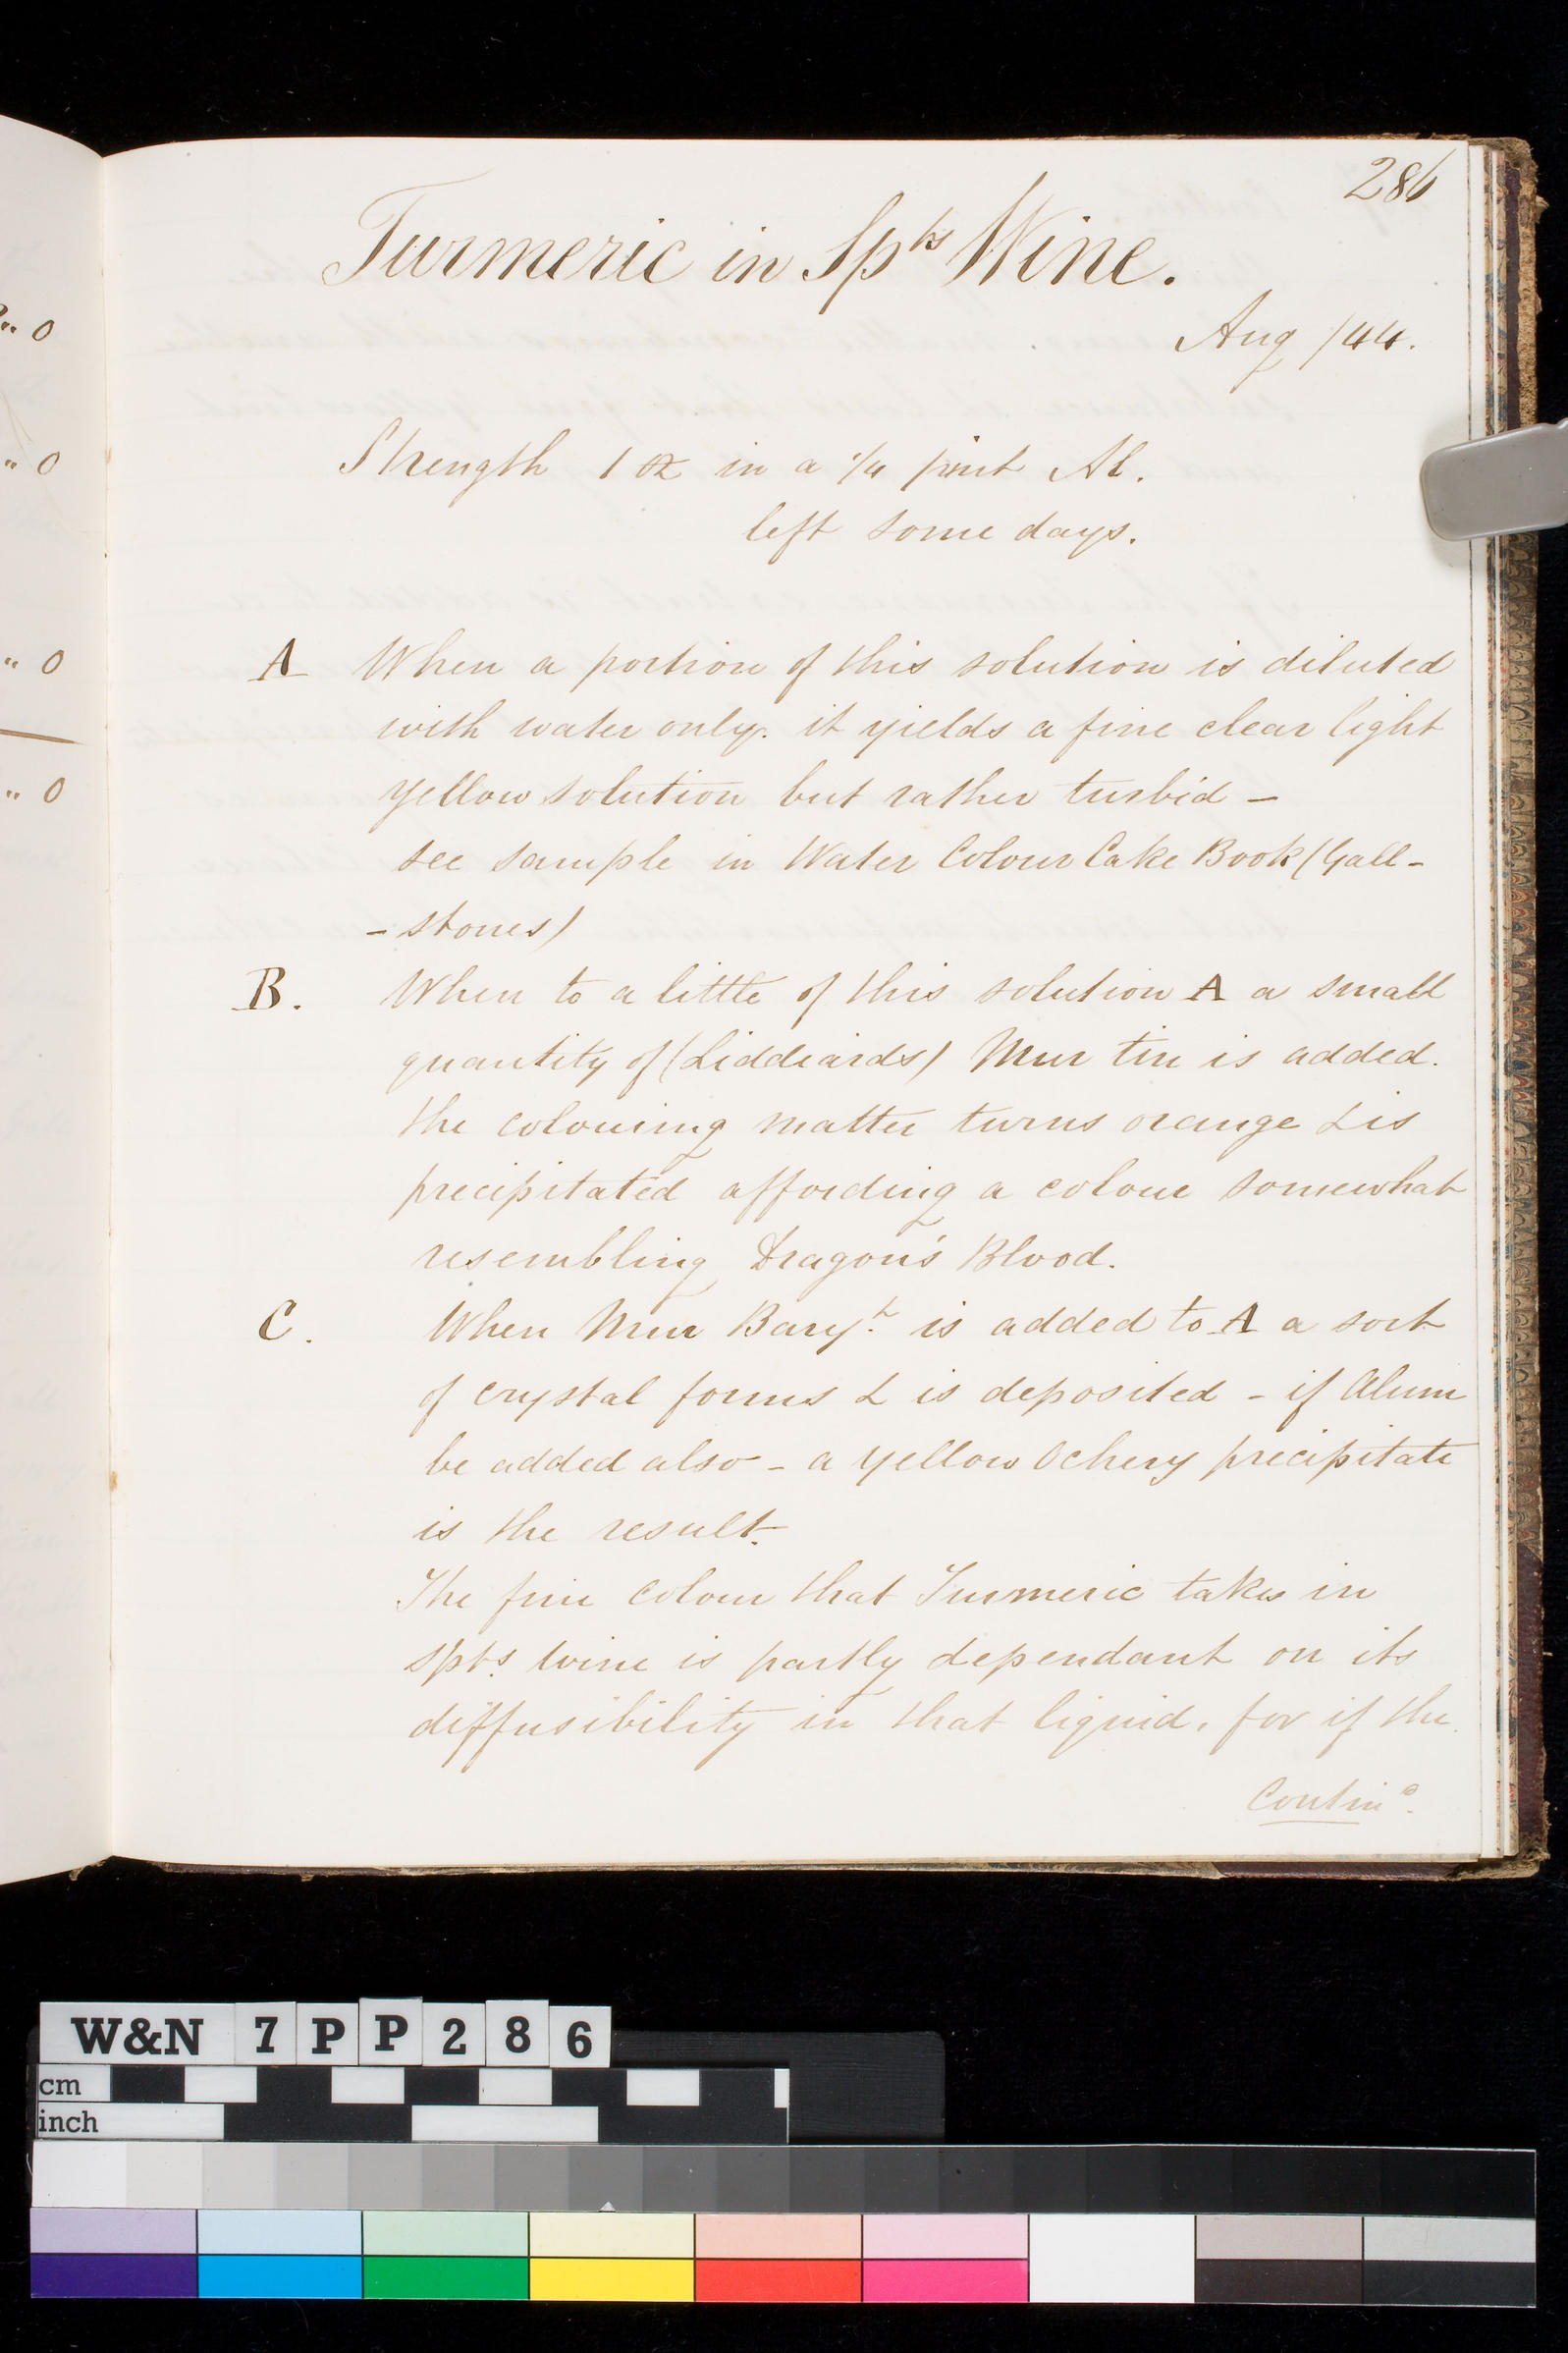 286
Turmeric in Spts Wine.
Aug /44.
Strength 1 oz in a 1/4 pint Al.
left some days.
A When a portion of this solution is diluted
with water only. it yields a fine clear light
yellow solution but rather turbid -
see sample in Water Colour Cake Book (Gall-
- stones)
B. When to a little of this solution A a small
quantity of (Liddiards) Mur tin is added.
the colouring matter turns orange & is
precipitated affording a colour somewhat
resembling Dragon's Blood.
C. When Mur Baryt. is added to A a sort
of crystal forms & is deposited - if Alum
be added also - a yellow Ochery precipitate
is the result.
The fine colour that Turmeric takes in
Spts. wine is partly dependant on its
diffusibility in that liquid, for if the
" 0
" 0
" 0
" 0
W&N 7 P P 2 8 6
cm
inch